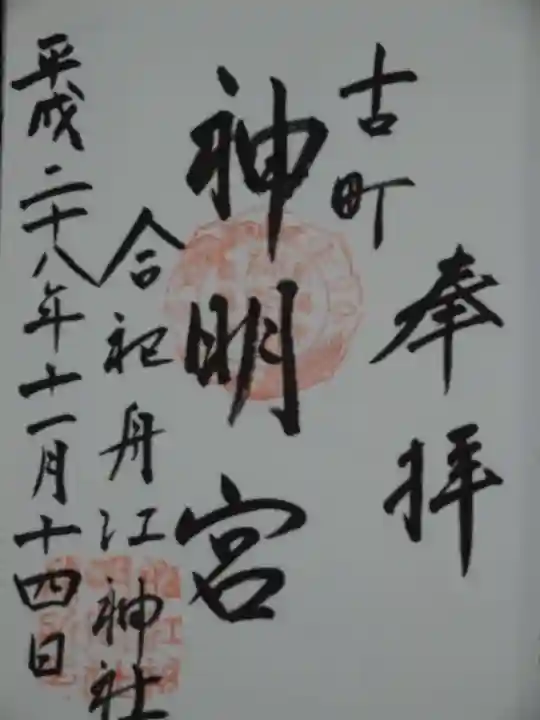 奉拝
古町
神明宮
合祀舟江神社
平成二十八年十一月十四日